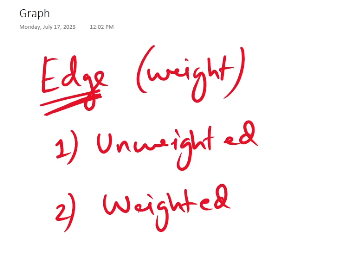 Graph
Monday, July 17, 2023 12:02 PM
Edge (weight)
1) Unweighted
2) Weighted